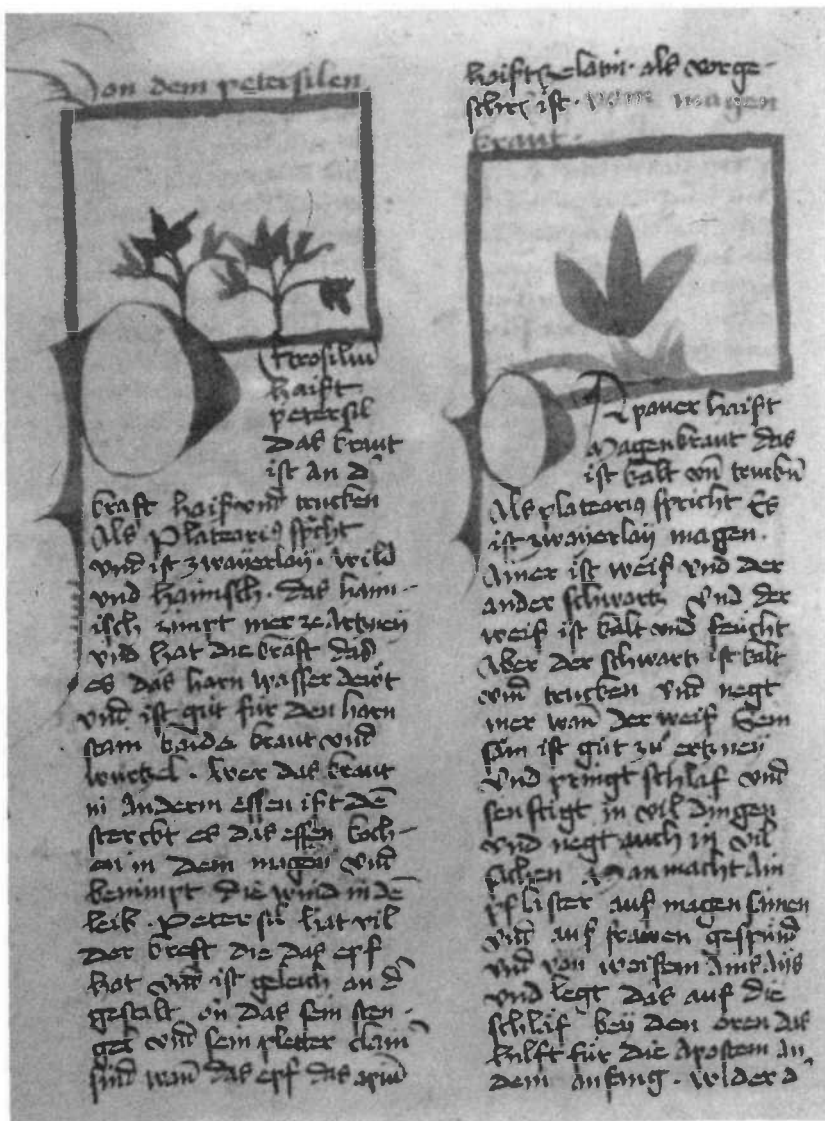 Von dem petersilen
Petrosiliū
haist
petersil
das kraut
ist an d'
kraft haiß vnd trucken
Als Platearius spricht
vnd ist zwayerlaÿ. wild
vnd haimisch. das haim-
isch zimpt mer ze artzneÿ
vnd hat die kraft das
es das harn wasser
vnd ist gůt für den harn
stain baide kraut vnd
wurtzel. Wer das kraut
in anderm essen ist dē
sterckt es das essen koch-
en in dem magen vnd
benimpt die wind in dē
leib. Petersil hat vil
der kreft die das epf
hat vnd ist geleich an d'
gestalt. on das sein sten-
gel vnd sein pleter clain
sind wan das epf das
haist ze latin. als vorge-
schriben ist. vom magen
kraut.
Papauer haist
Magenkraut das
ist kalt vnd truckñ
Als platearius spricht Es
ist zwayerlaÿ magen.
Ainer ist weiß vnd der
ander schwartz vnd der
weiß ist kalt vnd feucht
Aber der schwartz ist kalt
vnd trucken vnd negt
mer wan der weiß Sein
sam ist gůt zu ertzneÿ
vnd pringt schlaf vnd
senftigt in vil dingen
vnd negt auch in vil
sachen Man macht ain
pflaster auf magen samen
vnd auf frawen gespünn
vnd von weissem ains aÿs
vnd legt das auf die
schlaf beÿ den oren das
hilft für die apostem an
dem anfang. wider d'